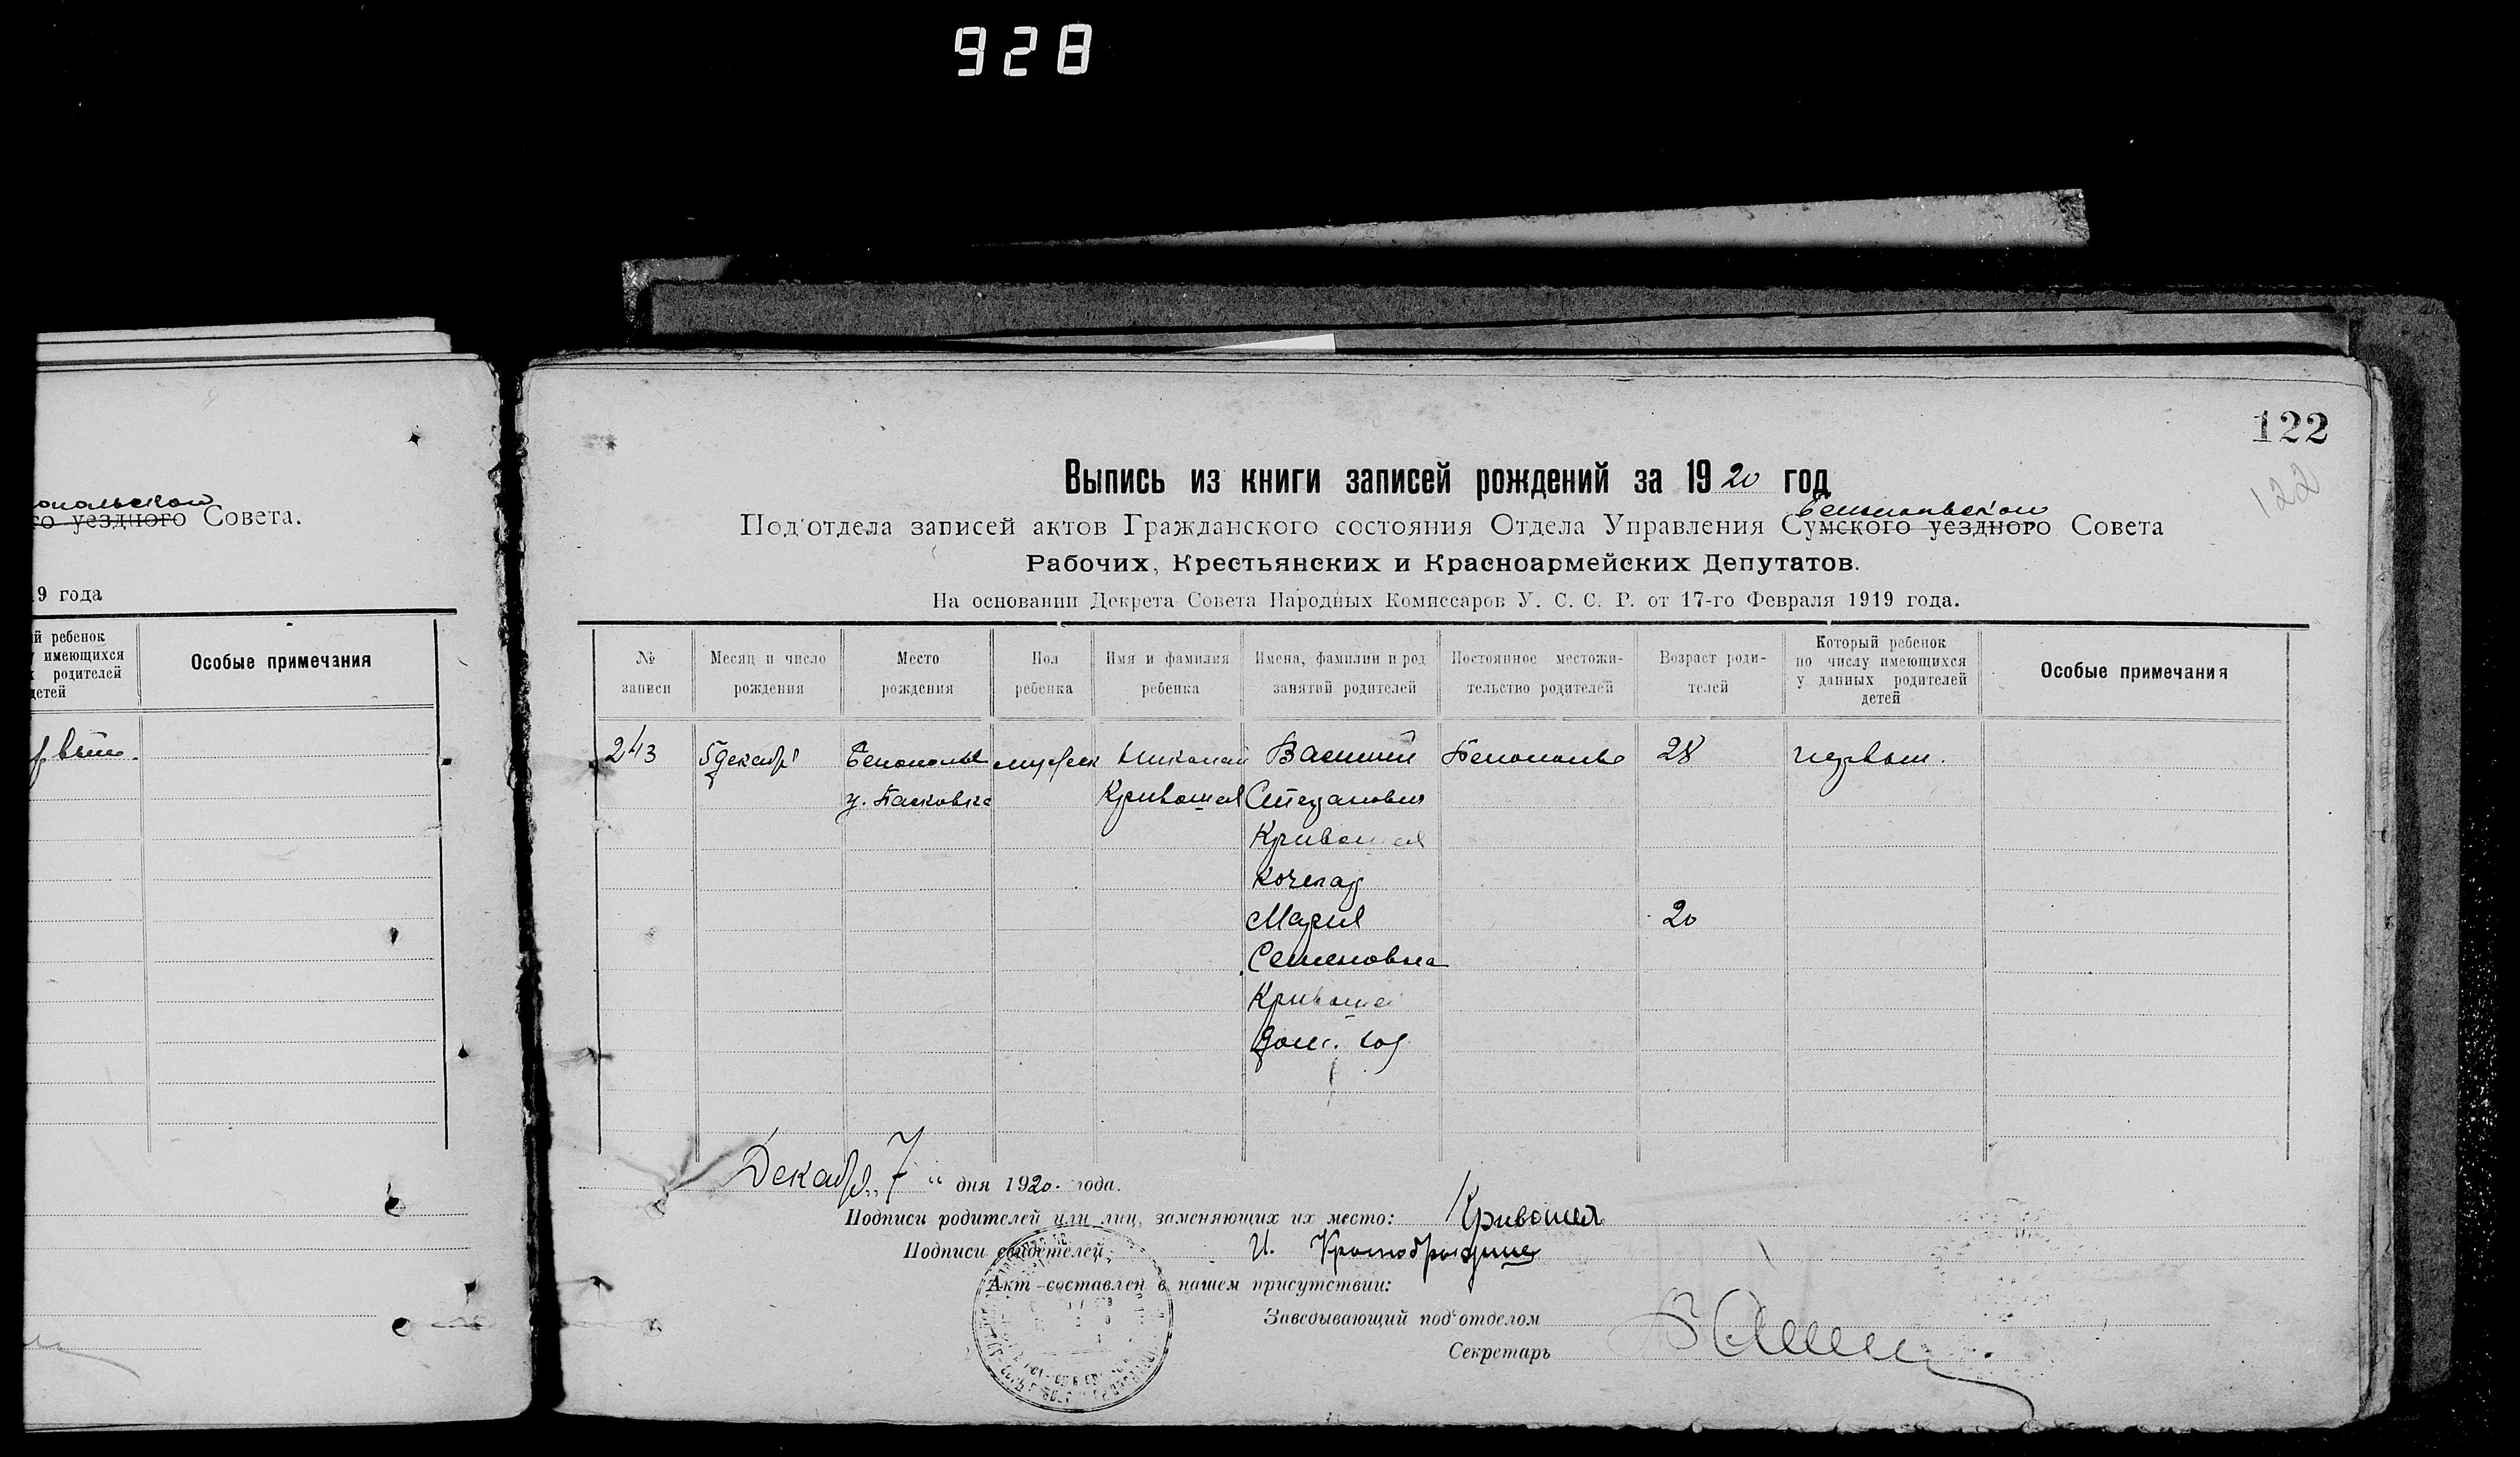 928
опольской
го уездного Совета.
19 года
й ребенок
у имеющихся
х родителей
детей
Особые примечания
122
122
Выпись из книги записей рождений за 1920 год
Белопольской
Под'отдела записей актов Гражданского состояния Отдела Управления Сумского уездного Совета
Рабочих, Крестьянских и Красноармейских Депутатов.
На основании Декрета Совета Народных Комиссаров У. С. С. Р. от 17-го Февраля 1919 года.
№ записи
Месяц и число рождения
Место рождения
Пол ребенка
Имя и фамилия ребенка
Имена, фамилии и род занятий родителей
Постоянное местожи-тельство родителей
Возраст роди-телей
Который ребенок по числу имеющихся у данных родителей детей
Особые примечания
243 5 декабр Белополье мужеск Николай Василий Белополье 28 первый.
Кривошея Степанович
Кривошея
кочегар
Мария 20
Семеновна
Кривошея
дом. хоз.
Декабр „7“ дня 1920. года.
Подписи родителей или лиц, заменяющих их место: Кривошея
Подписи свидетелей: И.
Акт составлен в нашем присутствии:
Заведывающий под'отделом
Секретарь